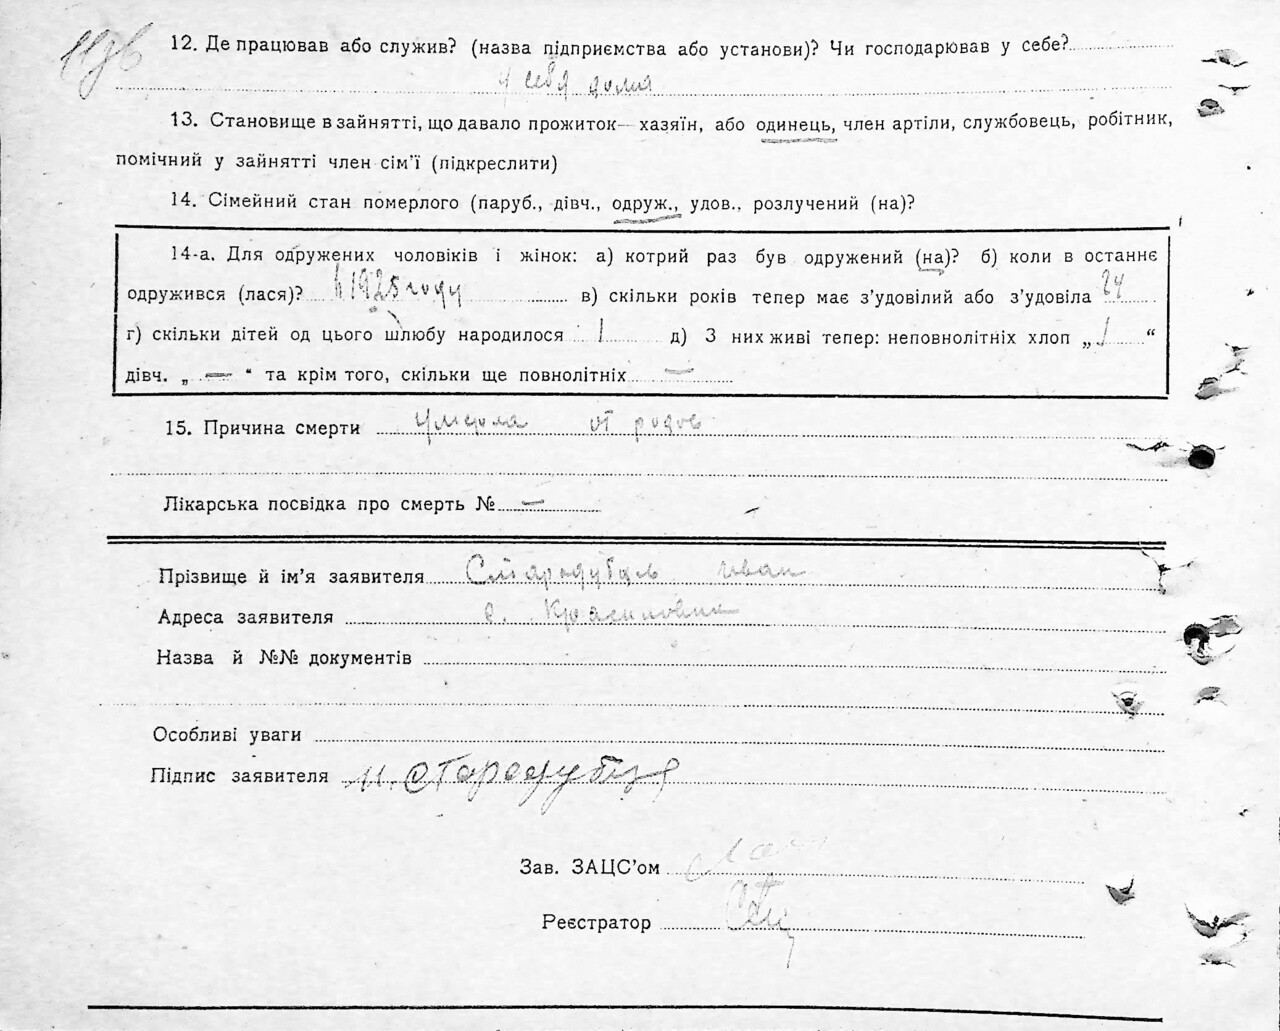 12. Де працював або служив? (назва підприємства або установи)? Чи господарював у себе?
у себя дома
13. Становище в зайнятті, що давало прожиток— хазяїн, або одинець, член артіли, службовець, робітник,
помічний у зайнятті член сім'ї (підкреслити)
14. Сімейний стан померлого (паруб., дівч., одруж., удов., розлучений (на)?
14-а. Для одружених чоловіків і жінок: а) котрий раз був одружений (на)? б) коли в останнє
одружився (лася)? в 1925 году в) скільки років тепер має з'удовілий або з'удовіла 24
г) скільки дітей од цього шлюбу народилося 1 д) З них живі тепер: неповнолітніх хлоп „ 1 “
дівч. „ — “ та крім того, скільки ще повнолітніх —
15. Причина смерти умерла от родов
Лікарська посвідка про смерть № —
Прізвище й ім'я заявителя Стародубец Иван
Адреса заявителя с. Красиловка
Назва й №№ документів
Особливі уваги
Підпис заявителя И. Стародубец
Зав. ЗАЦС'ом
Реєстратор